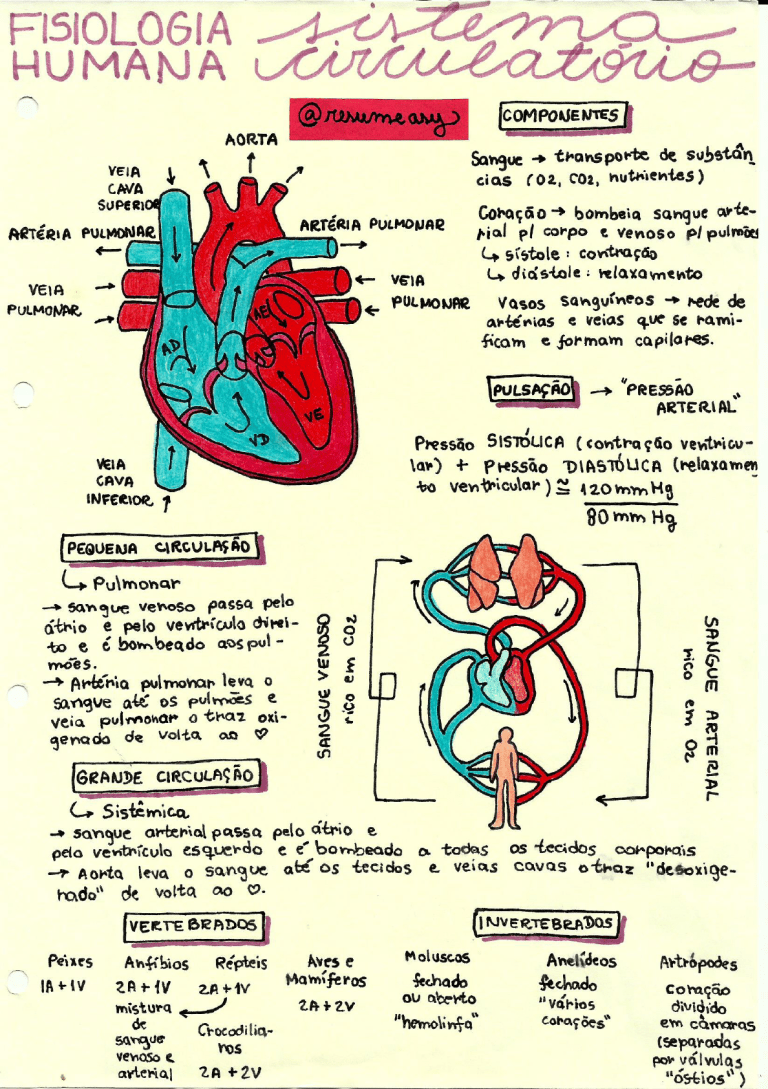 FISIOLOGIA
HUMANA
sistema
circulatório
@resumeasy
AORTA
VEIA
CAVA
SUPERIOR
ARTÉRIA PULMONAR
ARTÉRIA PULMONAR
VEIA
PULMONAR
VEIA
PULMONAR
AD
AE
VD
VE
VEIA
CAVA
INFERIOR
COMPONENTES
Sangue → transporte de substân
cias (O2, CO2, nutrientes)
Coração → bombeia sangue arte-
rial p/ corpo e venoso p/ pulmões
↳ sístole: contração
↳ diástole: relaxamento
Vasos sanguíneos → rede de
artérias e veias que se rami-
ficam e formam capilares.
PULSAÇÃO → "PRESSÃO
ARTERIAL"
Pressão SISTÓLICA (contração ventricu-
lar) + Pressão DIASTÓLICA (relaxamen
to ventricular) ≅ 120 mm Hg
80 mm Hg
PEQUENA CIRCULAÇÃO
↳ Pulmonar
→ sangue venoso passa pelo
átrio e pelo ventrículo direi-
to e é bombeado aos pul-
mões.
→ Artéria pulmonar leva o
sangue até os pulmões e
veia pulmonar o traz oxi-
genado de volta ao ♡
SANGUE VENOSO
rico em CO2
SANGUE ARTERIAL
rico em O2
GRANDE CIRCULAÇÃO
↳ Sistêmica
→ sangue arterial passa pelo átrio e
pelo ventrículo esquerdo e é bombeado a todos os tecidos corporais
→ Aorta leva o sangue até os tecidos e veias cavas o traz "desoxige-
nado" de volta ao ♡.
VERTEBRADOS
Peixes
1A+1V
Anfíbios
2A+1V
mistura
de
sangue
venoso e
arterial
Répteis
2A+1V
Crocodilia-
nos
2A+2V
Aves e
Mamíferos
2A+2V
INVERTEBRADOS
Moluscos
fechado
ou aberto
"hemolinfa"
Anelídeos
fechado
"vários
corações"
Artrópodes
coração
dividido
em câmaras
(separadas
por válvulas
"óstios")